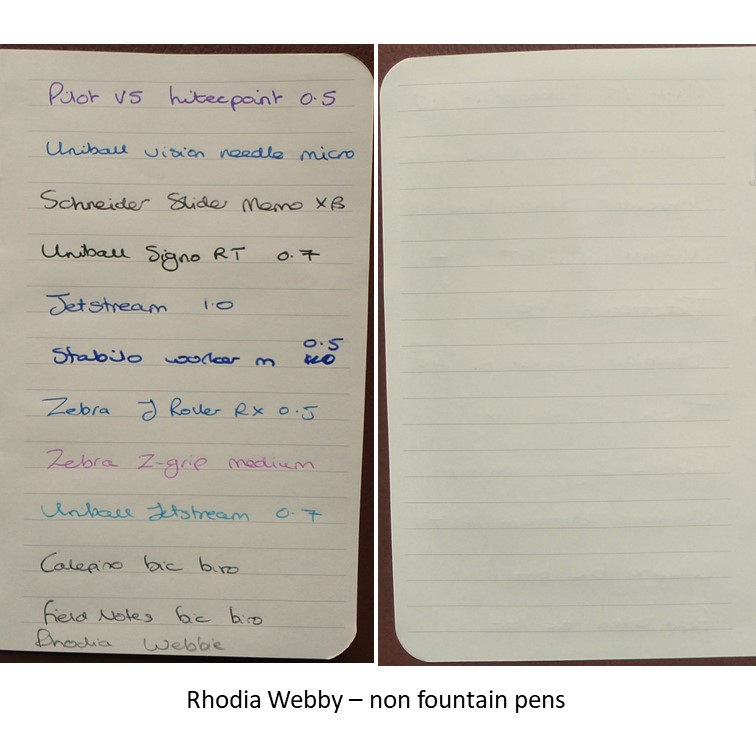 Pilot V5 hitecpoint 0.5
Uniball vision needle micro
Schneider Slider Memo XB
Uniball Signo RT 0.7
Jetstream 1.0
Stabilo worker m 0.5
Zebra J Roller RX 0.5
Zebra Z-grip medium
Uniball Jetstream 0.7
Calepino bic biro
Field Notes bic biro
Rhodia Webbie
Rhodia Webby – non fountain pens